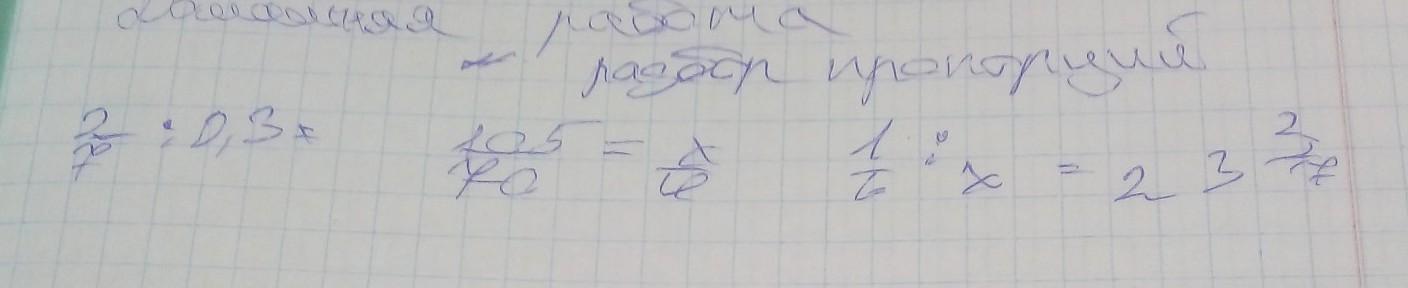 Домашняя работа
разбор пропорций
2/7 : 0,3 = 105/70 = x/4 1/6 : x = 2 3 2/17